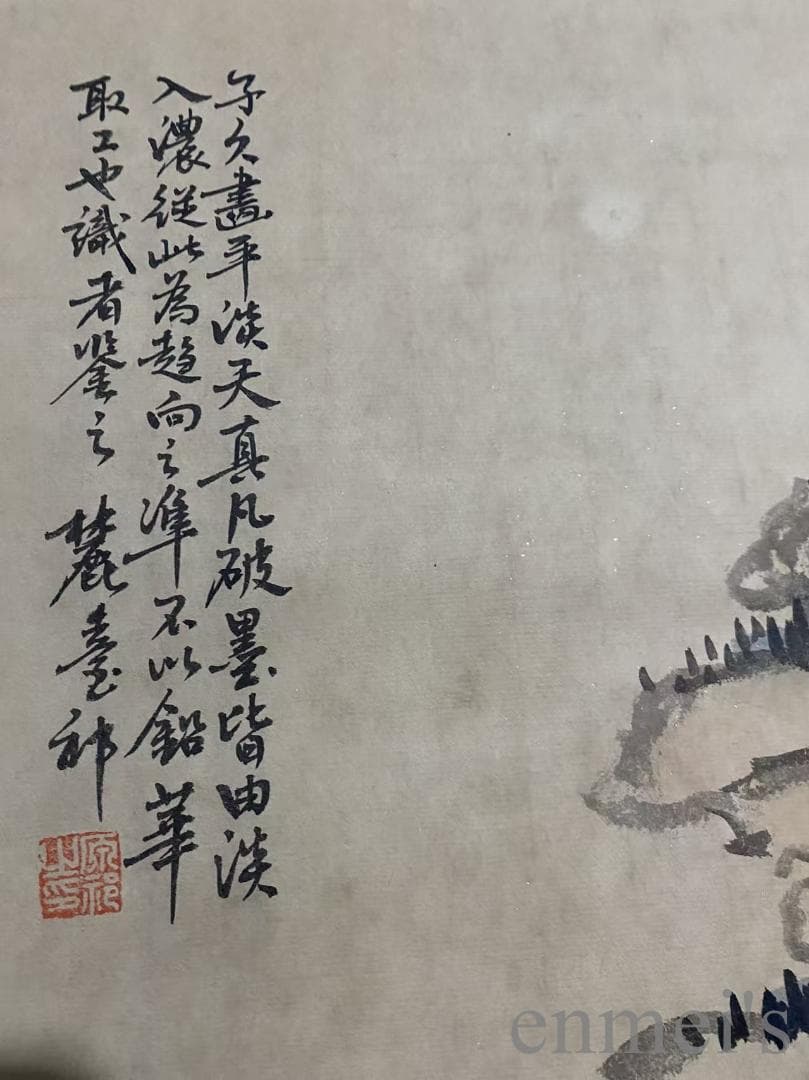 子久畫平淡天真凡破墨皆由淡
入濃從此為趨向之準不以鉛華
取工也識者鑒之 麓臺祁
原祁之印
enmei's